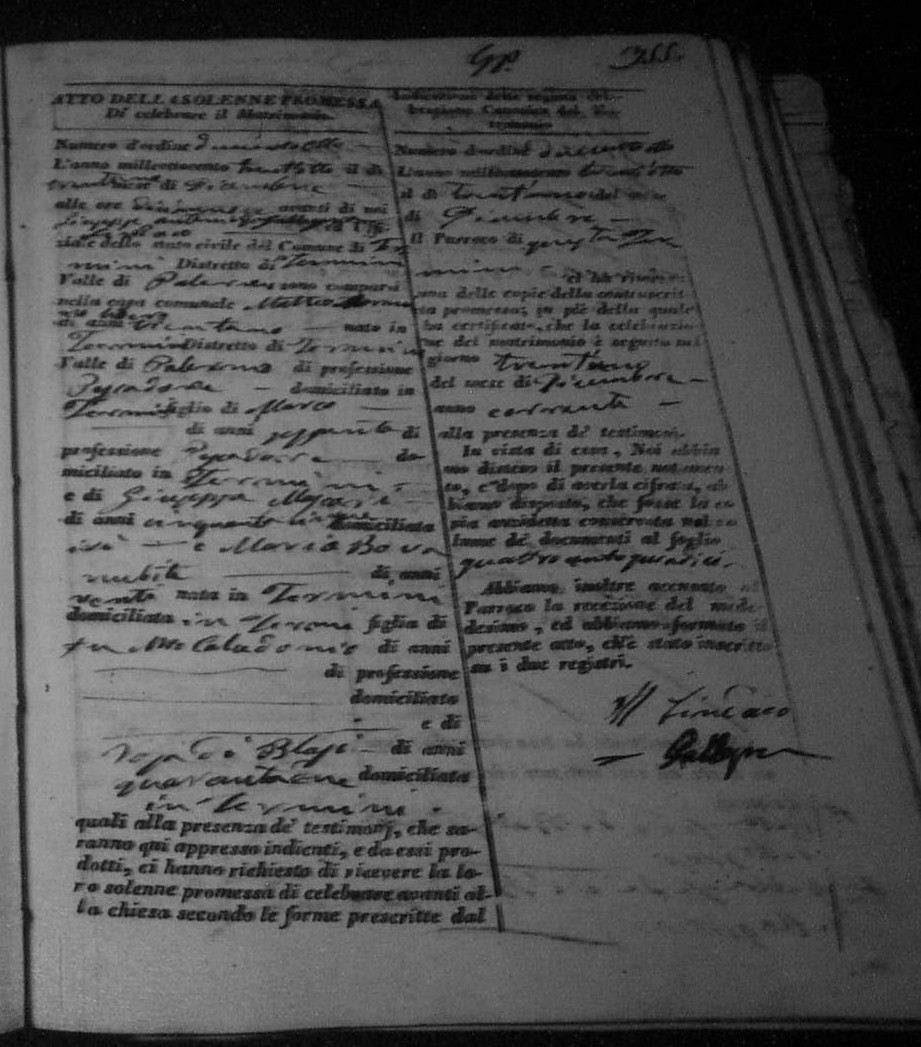 ATTO DELLA SOLENNE PROMESSA
Di celebrare il Matrimonio.
Numero d'ordine
L'anno milleottocento trentotto il dì
mese di Dicembre
alle ore avanti di noi
Giuseppe Antonio
ziale dello stato civile del Comune di Ter
mini Distretto di Termini
Valle di Palermo sono comparsi
nella casa comunale Matteo
di anni trentuno nato in
Termini Distretto di Termini
Valle di Palermo di professione
Pescadore domiciliato in
Termini figlio di Marco
di anni sessanta di
professione Pescadore do-
miciliato in Termini
e di Giuseppa
di anni cinquanta domiciliata
ivi e Maria Bova
nubile di anni
venti nata in Termini
domiciliata in Termini figlia di
fu di anni
di professione
domiciliato
e di
Rosa Di Blasi di anni
domiciliata
in Termini
quali alla presenza de' testimonj, che sa-
ranno qui appresso indicati, e da essi pro-
dotti, ci hanno richiesto di ricevere la lo-
ro solenne promessa di celebrare avanti al-
la chiesa secondo le forme prescritte dal
Indicazione della seguita cele-
brazione Canonica del Ma-
trimonio
Numero d'ordine
L'anno milleottocento trentotto
il dì trentuno del mese
di Dicembre
il Parroco di questa Ter
mini ci ha rimesso
una delle copie della controscrit-
ta promessa; in piè della quale
ha certificato, che la celebrazio-
ne del matrimonio è seguita nel
giorno trentuno
del mese di Dicembre
anno corrente
alla presenza de' testimonj.
In vista di essa, Noi abbia
mo disteso il presente notamen-
to, e dopo di averla cifrata, ab-
biamo disposto, che fosse la co-
pia anzidetta conservata nel vo-
lume de' documenti al foglio
quattrocentoquindici
Abbiamo inoltre accusato al
Parroco la recezione del mede-
desimo, ed abbiamo formato il
presente atto, ch'è stato inscritto
su i due registri.
Il Sindaco